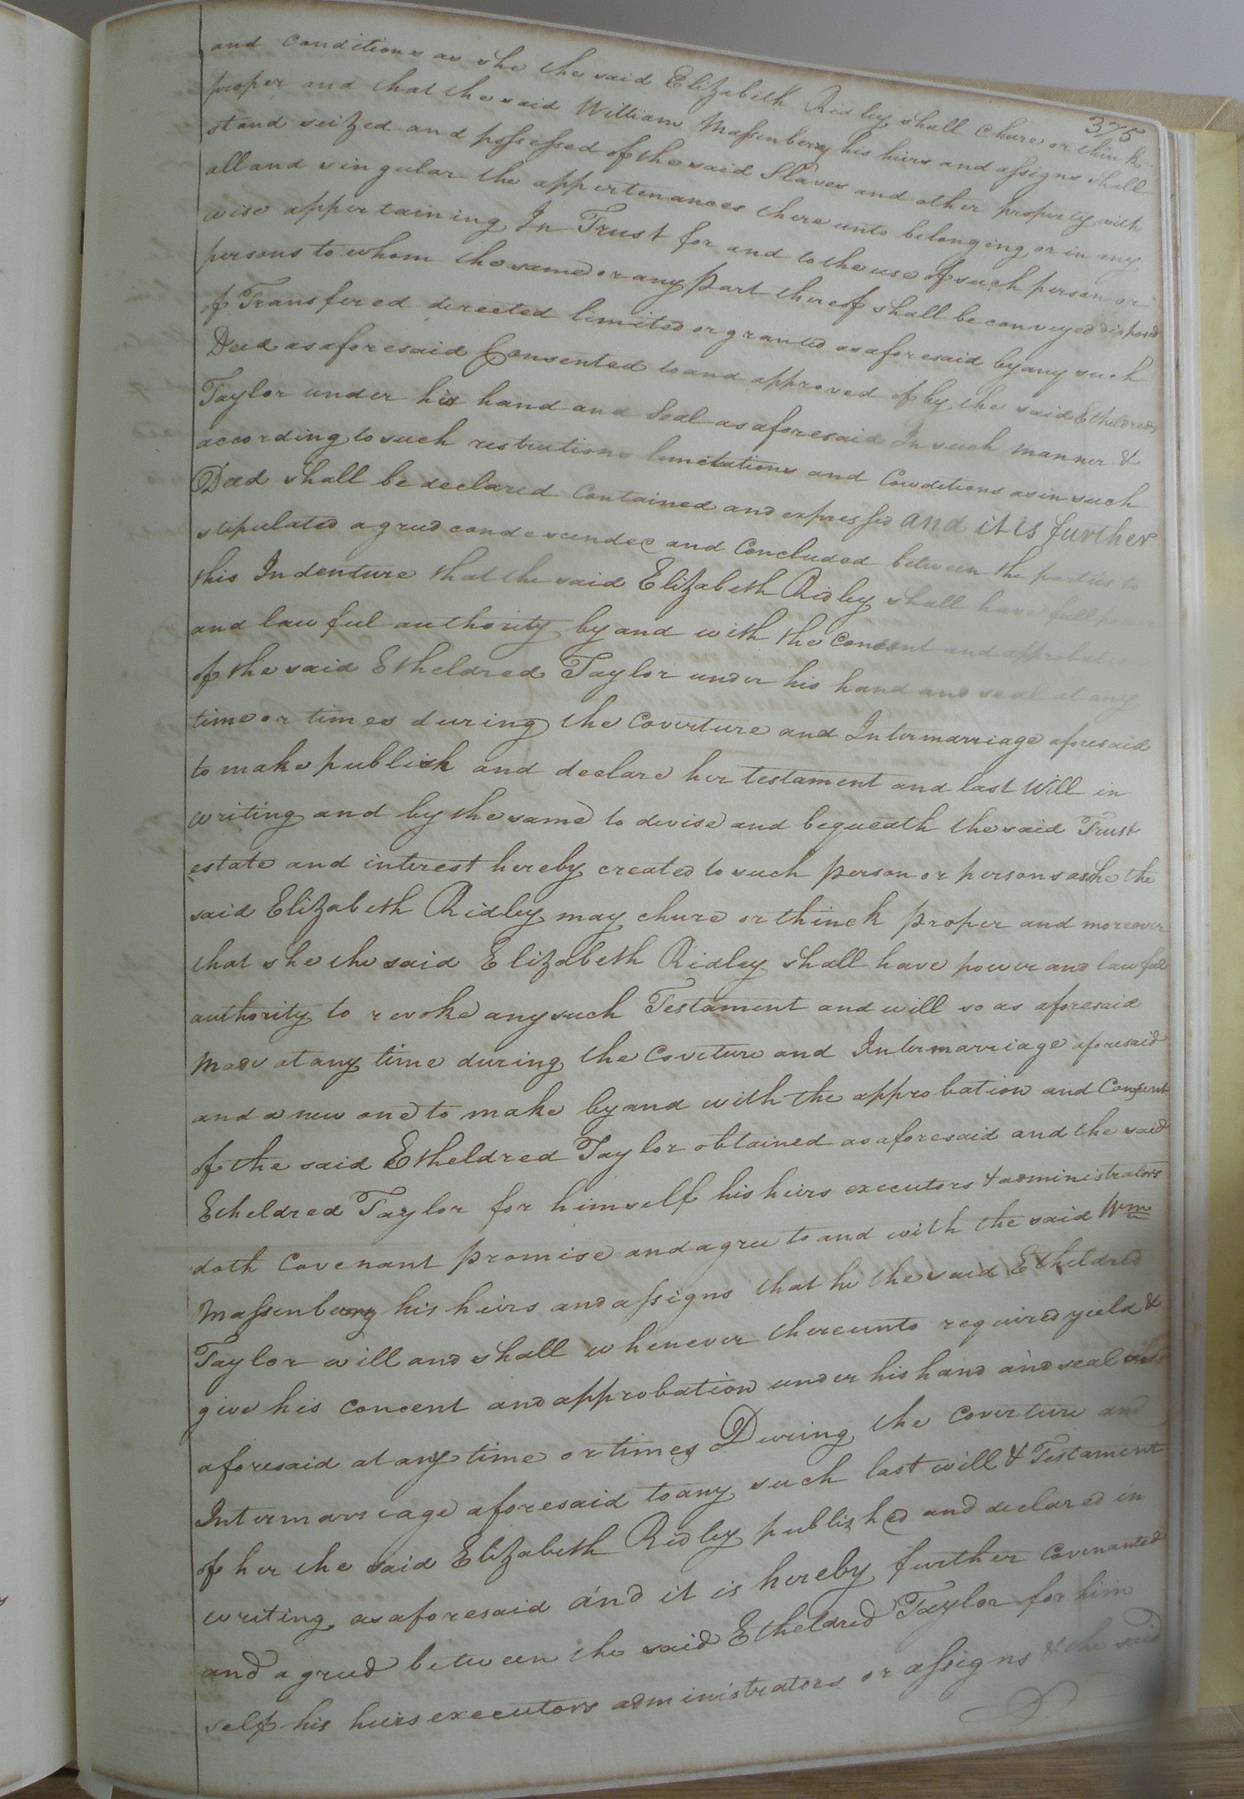 375
and conditions as she the said Elizabeth Ridley shall chuse or think
proper and that the said William Massenberg his heirs and assigns shall
stand seized and possessed of the said Slaves and other property with
all and singular the appertenances there unto belonging or in any
wise appertaining In Trust for and to the use of such person or
persons to whom the same or any part thereof shall be conveyed disposed
of Transfered directed limited or granted as aforesaid by any such
Deed as aforesaid Consented to and approved of by the said Etheldred
Taylor under his hand and Seal as aforesaid In such manner &
according to such restrictions limitations and Conditions as in such
Deed shall be declared contained and expressed and it is further
stipulated agreed condescended and Concluded between the parties to
this Indenture that the said Elizabeth Ridley shall have full
and lawful authority by and with the consent and approbat
of the said Etheldred Taylor under his hand and seal at any
time or times during the Coverture and Intermarriage aforesaid
to make publish and declare her testament and last Will in
writing and by the same to devise and bequeath the said Trust
estate and interest hereby created to such person or persons as she the
said Elizabeth Ridley may chuse or thinck proper and moreover
that she the said Elizabeth Ridley shall have power and lawful
authority to revoke any such Testament and will so as aforesaid
made at any time during the Coveture and Intermarriage aforesaid
and a new one to make by and with the approbation and Consent
of the said Etheldred Taylor obtained as aforesaid and the said
Etheldred Taylor for himself his heirs executors & administrators
doth Covenant promise and agree to and with the said Wm
Massenberg his heirs and assigns that he the said Etheldred
Taylor will and shall whenever thereunto required yield &
give his concent and approbation under his hand and seal as
aforesaid at any time or times During the coverture and
Intermarriage aforesaid to any such last will & Testament
of her the said Elizabeth Ridley published and declared in
writing as aforesaid and it is hereby further covenanted
and agreed between the said Etheldred Taylor for him
self his heirs executors administrators or assigns & the said